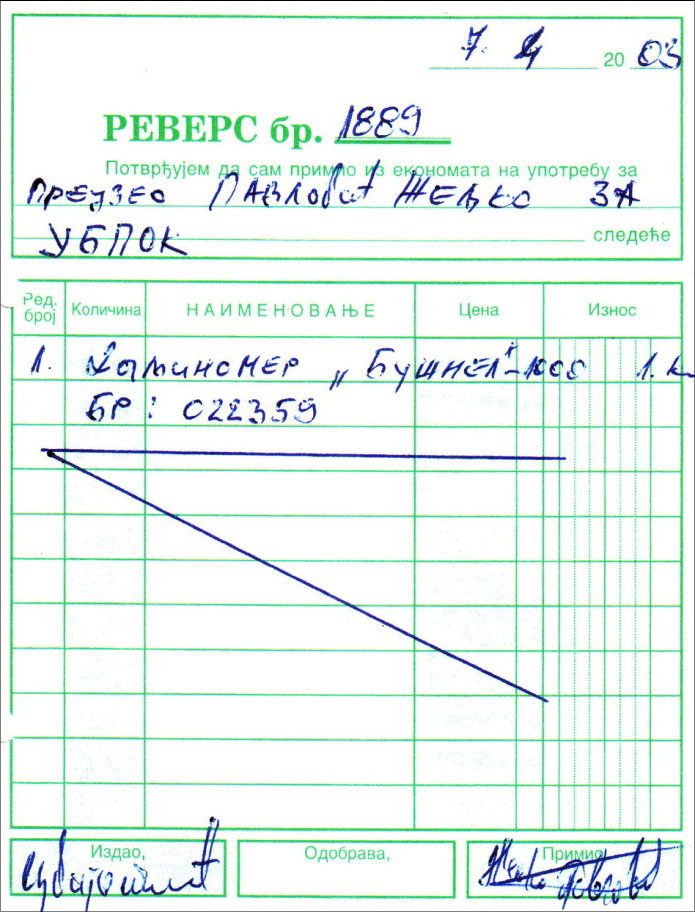 7. 4 20 03
РЕВЕРС бр. 1889
Потврђујем да сам примио из економата на употребу за
ПРЕУЗЕО ПАВЛОВИЋ ЖЕЉКО ЗА
УБПОК следеће
Ред. број Количина НАИМЕНОВАЊЕ Цена Износ
1. ДАЉИНОМЕР „БУШНЕЛ"- 1. К
БР: 022359
Издао, Одобрава, Примио,